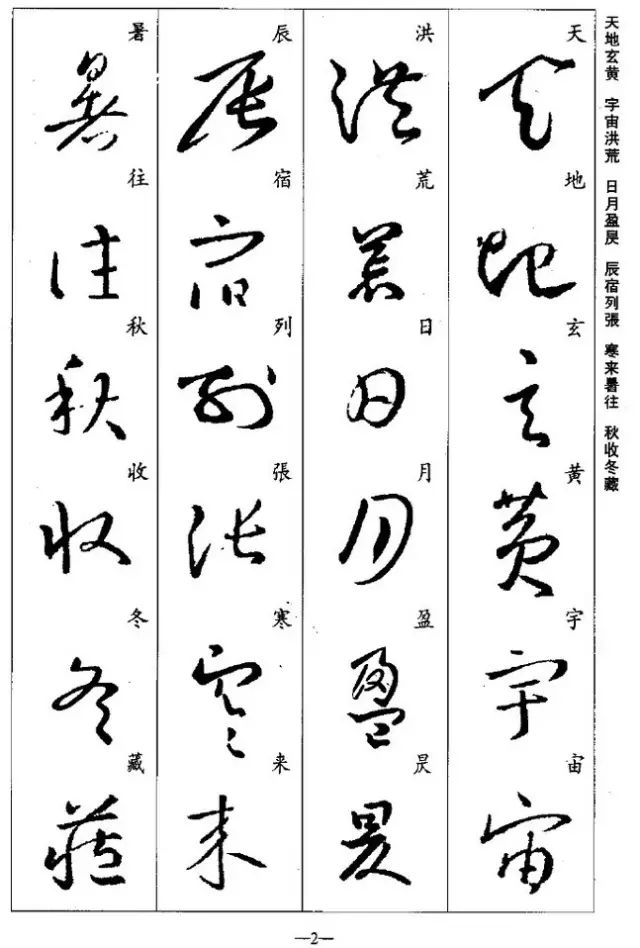 天地玄黄 宇宙洪荒 日月盈昃 辰宿列張 寒来暑往 秋收冬藏
天地玄黄宇宙
天地玄黄宇宙
洪荒日月盈昃
洪荒日月盈昃
辰宿列張寒来
辰宿列張寒来
暑往秋收冬藏
暑往秋收冬藏
—2—